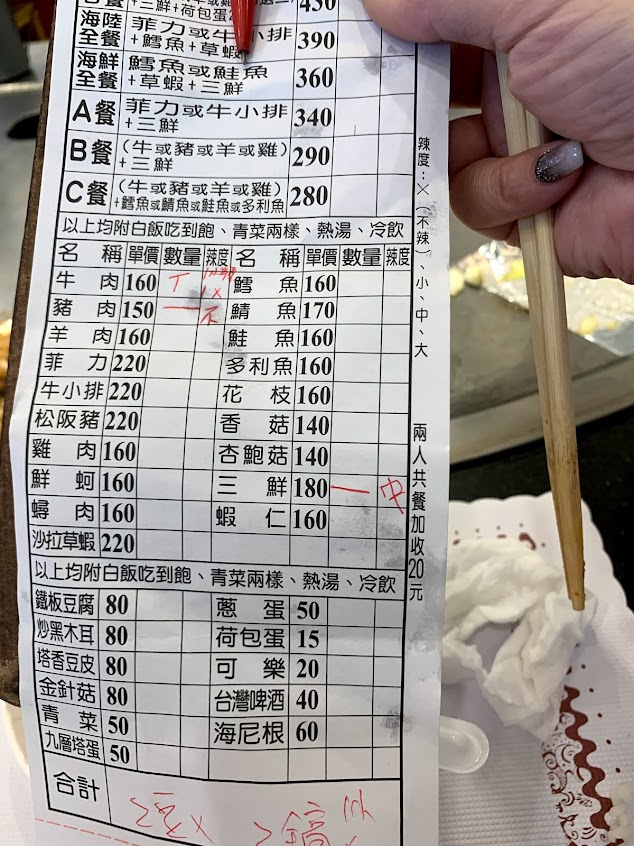 +三鮮+荷包蛋 430
海陸全餐 菲力或牛小排+鱈魚+草蝦 390
海鮮全餐 鱈魚或鮭魚+草蝦+三鮮 360
A餐 菲力或牛小排+三鮮 340
B餐 (牛或豬或羊或雞)+三鮮 290
C餐 (牛或豬或羊或雞)+鱈魚或鯖魚或鮭魚或多利魚 280
以上均附白飯吃到飽、青菜兩樣、熱湯、冷飲
名稱 單價 數量 辣度 名稱 單價 數量 辣度
牛肉 160 鱈魚 160
豬肉 150 一 不 鯖魚 170
羊肉 160 鮭魚 160
菲力 220 多利魚 160
牛小排 220 花枝 160
松阪豬 220 香菇 140
雞肉 160 杏鮑菇 140
鮮蚵 160 三鮮 180 一 中
蟳肉 160 蝦仁 160
沙拉草蝦 220
以上均附白飯吃到飽、青菜兩樣、熱湯、冷飲
鐵板豆腐 80 蔥蛋 50
炒黑木耳 80 荷包蛋 15
塔香豆皮 80 可樂 20
金針菇 80 台灣啤酒 40
青菜 50 海尼根 60
九層塔蛋 50
合計
辣度:×(不辣)、小、中、大
兩人共餐加收20元